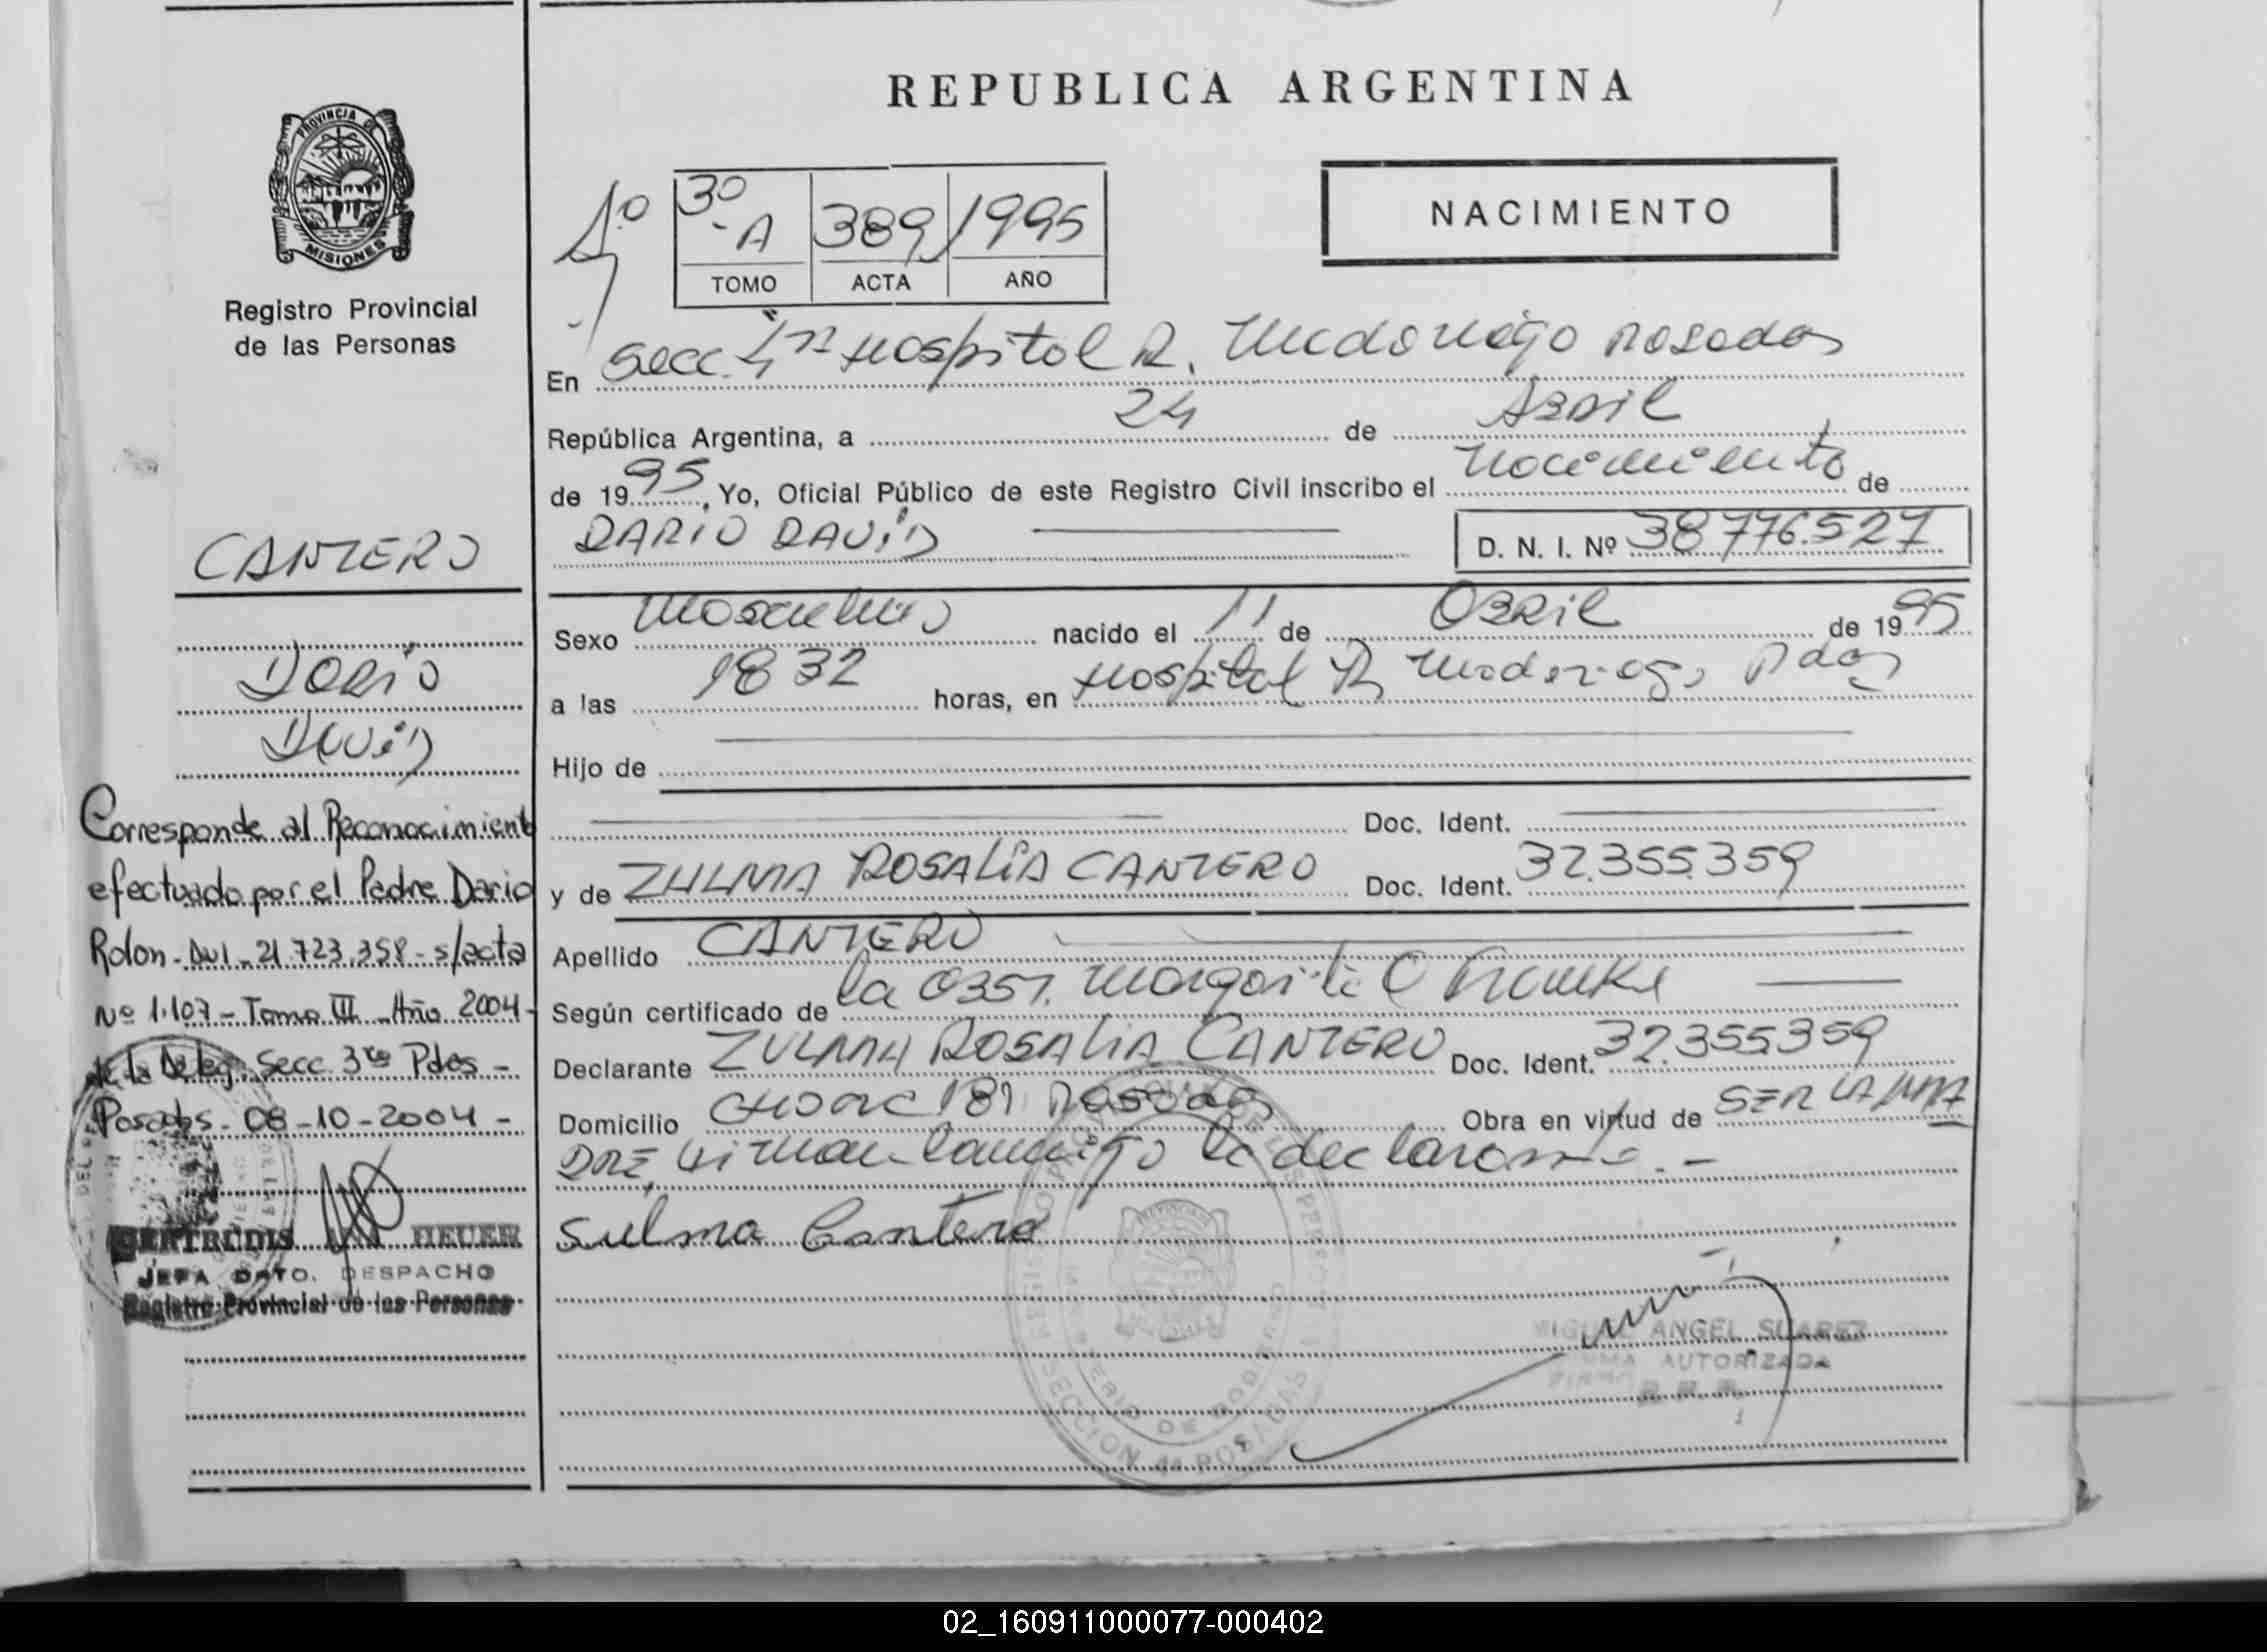 REPUBLICA ARGENTINA
PROVINCIA DE
MISIONES
Registro Provincial
de las Personas
3º
-A 389 1995
TOMO ACTA AÑO
NACIMIENTO
En Secc. Hospital R. Madariaga Posadas
República Argentina, a 24 de Abril
de 1995, Yo, Oficial Público de este Registro Civil inscribo el Nacimiento de
DARIO DAVID
D. N. I. Nº 38776.527
Sexo Masculino nacido el 11 de Abril de 1995
a las 18 32 horas, en Hospital R. Madariaga Pdas
Hijo de
Doc. Ident.
y de ZULMA ROSALIA CANTERO Doc. Ident. 32.355.359
Apellido CANTERO
Según certificado de la Obst. Margarita
Declarante ZULMA ROSALIA CANTERO Doc. Ident. 32.355.359
Domicilio 181 Posadas Obra en virtud de SER LA MA
DRE, firman conmigo la declarante.-
Sulma Cantero
MIGUEL ANGEL SUAREZ
FIRMA AUTORIZADA
CANTERO
Dario
David
Corresponde al Reconocimient
efectuado por el Padre Dario
Rolon - DNI - 21.723.358 - s/acta
Nº 1.107 - Tomo III - Año 2004 -
de la Deleg. Secc. 3ra Pdas -
Posadas - 08-10-2004 -
GERTRUDIS HEUER
JEFA DPTO. DESPACHO
Registro Provincial de las Personas
SECCION 4a POSADAS
02_160911000077-000402